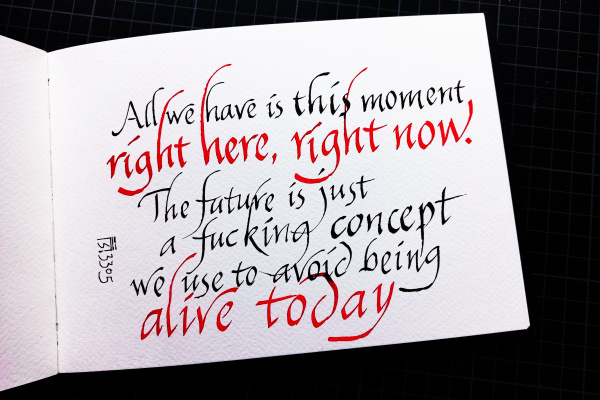 All we have is this moment,
right here, right now!
The future is just
a fucking concept
we use to avoid being
alive today